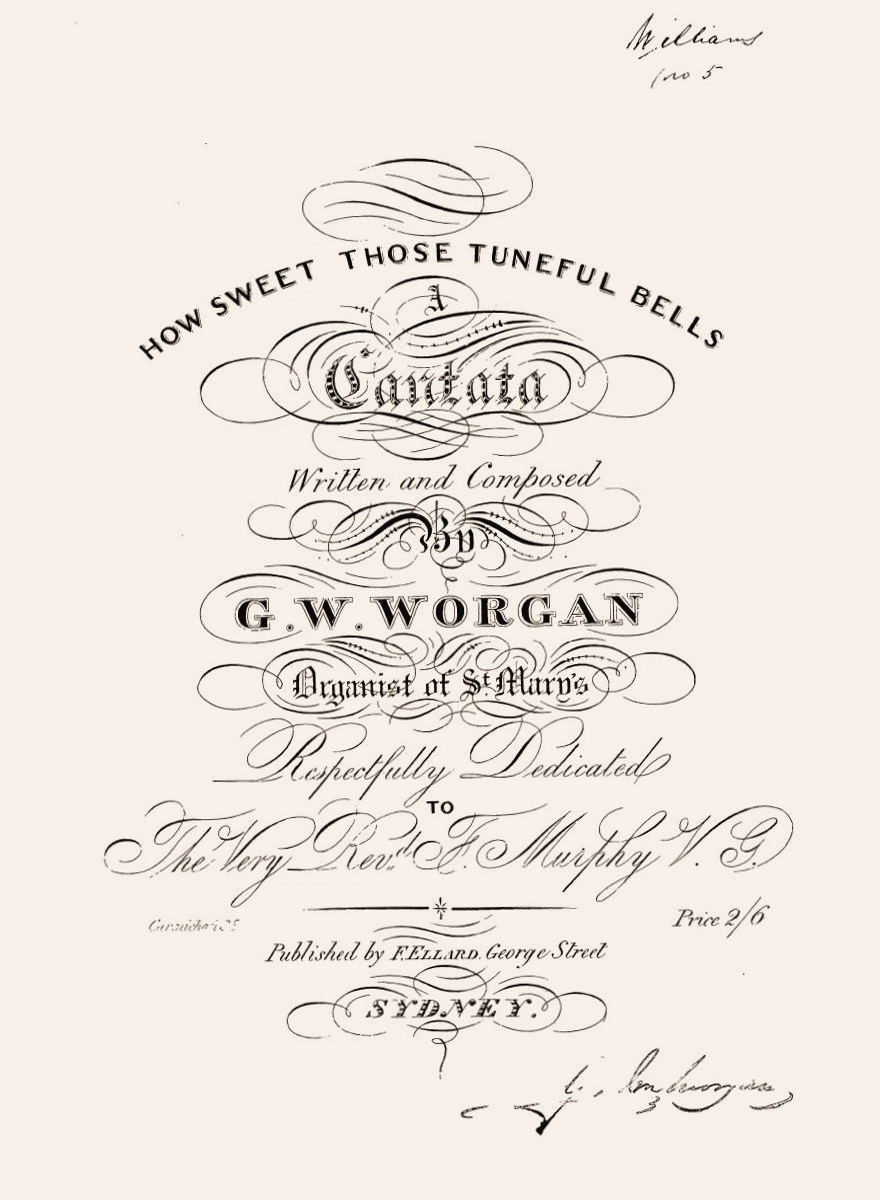 Williams
no 5
HOW SWEET THOSE TUNEFUL BELLS
A
Cantata
Written and Composed
By
G.W. WORGAN
Organist of St. Mary's
Respectfully Dedicated
TO
The Very Revd. F. Murphy V. G.
Price 2/6
Published by F. ELLARD. George Street
SYDNEY.